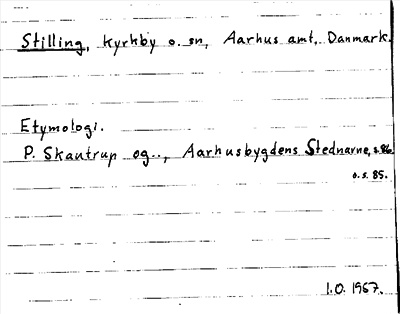 Stilling, kyrkby o. sn, Aarhus amt, Danmark.
Etymologi.
P. Skautrup og.., Aarhusbygdens Stednavne, s. 86
o. s. 85.
I.O. 1967.